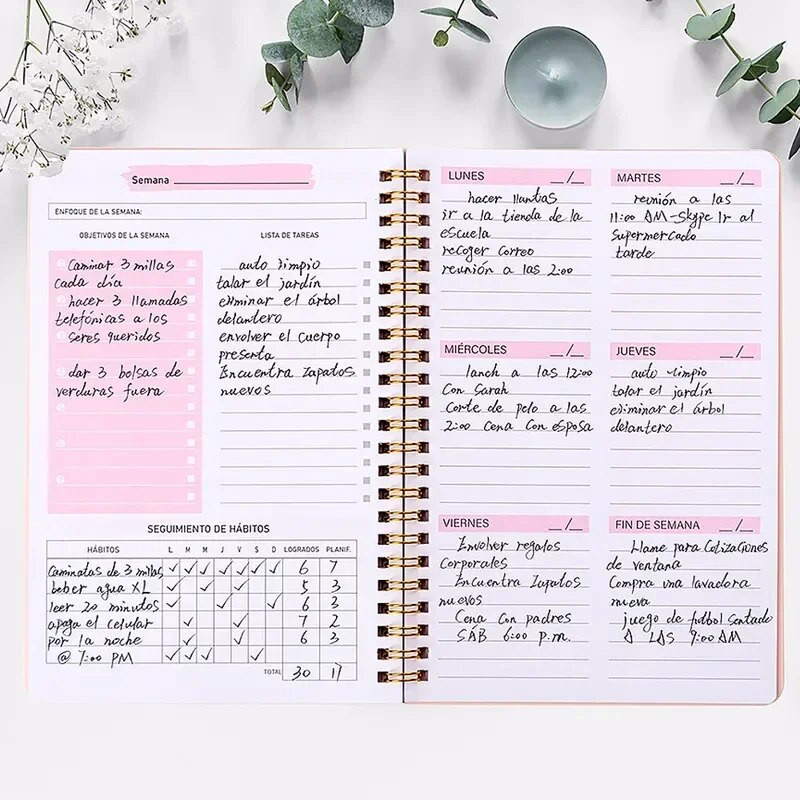 Semana
ENFOQUE DE LA SEMANA:
OBJETIVOS DE LA SEMANA
Caminar 3 millas
cada día
hacer 3 llamadas
telefónicas a los
seres queridos
dar 3 bolsas de
verduras fuera
LISTA DE TAREAS
auto limpio
talar el jardín
eliminar el árbol
delantero
envolver el cuerpo
presenta
Encuentra zapatos
nuevos
SEGUIMIENTO DE HÁBITOS
HÁBITOS L M M J V S D LOGRADOS PLANIF.
Caminatas de 3 millas ✓ ✓ ✓ ✓ ✓ ✓ ✓ 6 7
beber agua XL ✓ ✓ ✓ 5 3
leer 20 minutos ✓ ✓ ✓ 6 3
apaga el celular ✓ ✓ 7 2
por la noche ✓ ✓ 6 3
@ 7:00 PM ✓ ✓ ✓ ✓
TOTAL 30 17
LUNES __/__
hacer llantas
ir a la tienda de la
escuela
recoger correo
reunión a las 2:00
MARTES __/__
reunión a las
11:00 AM-Skype Ir al
Supermercado
tarde
MIÉRCOLES __/__
lanch a las 12:00
Con Sarah
Corte de pelo a las
2:00 Cena Con esposa
JUEVES __/__
auto limpio
talar el jardín
eliminar el árbol
delantero
VIERNES __/__
Envolver regalos
Corporales
Encuentra Zapatos
nuevos
Cena Con padres
SÁB 6:00 p.m.
FIN DE SEMANA __/__
Llame para Cotizaciones
de ventana
Compra una lavadora
nueva
juego de futbol sentado
A LAS 9:00 AM